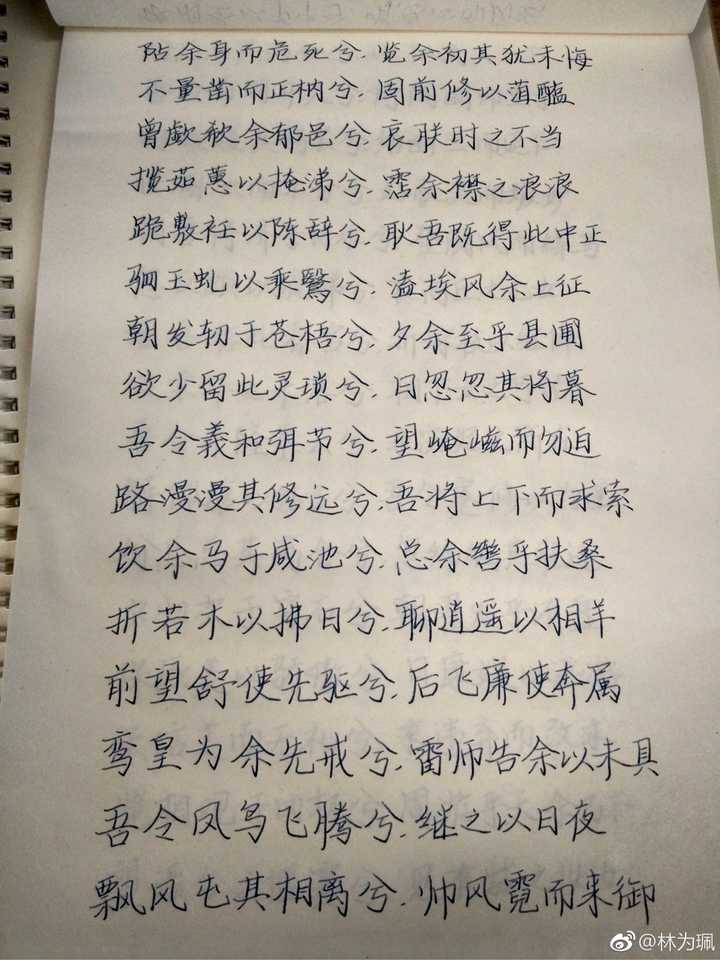 阽余身而危死兮.览余初其犹未悔
不量凿而正枘兮.固前修以菹醢
曾歔欷余郁邑兮.哀朕时之不当
揽茹蕙以掩涕兮.霑余襟之浪浪
跪敷衽以陈辞兮.耿吾既得此中正
驷玉虬以乘鹥兮.溘埃风余上征
朝发轫于苍梧兮.夕余至乎县圃
欲少留此灵琐兮.日忽忽其将暮
吾令羲和弭节兮.望崦嵫而勿迫
路漫漫其修远兮.吾将上下而求索
饮余马于咸池兮.总余辔乎扶桑
折若木以拂日兮.聊逍遥以相羊
前望舒使先驱兮.后飞廉使奔属
鸾皇为余先戒兮.雷师告余以未具
吾令凤鸟飞腾兮.继之以日夜
飘风屯其相离兮.帅风霓而来御
@林为珮